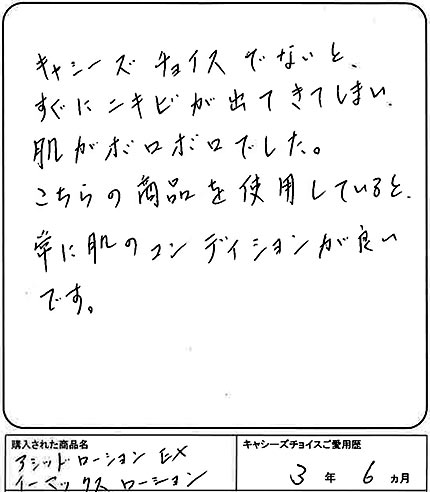 キャシーズチョイスでないと、
すぐにニキビが出てきてしまい、
肌がボロボロでした。
こちらの商品を使用していると、
常に肌のコンディションが良い
です。
購入された商品名
アシッドローション EX
イーマックスローション
キャシーズチョイスご愛用歴
3 年 6 ヵ月